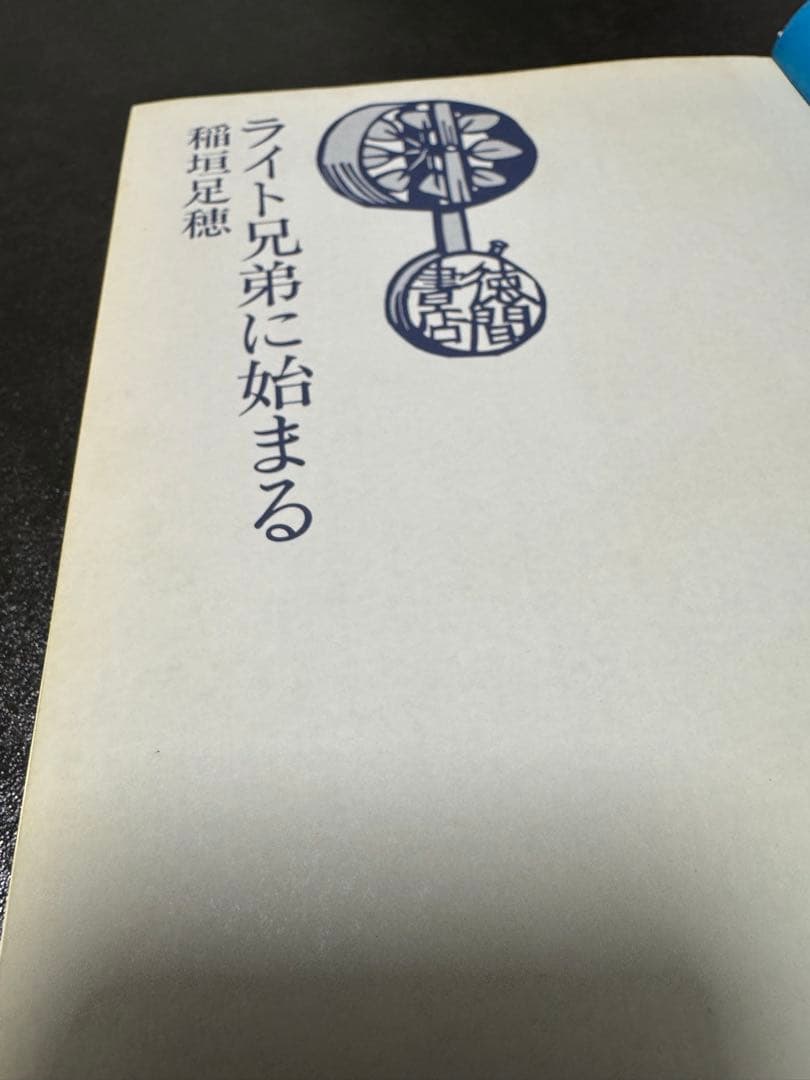 徳間
書店
ライト兄弟に始まる
稲垣足穂